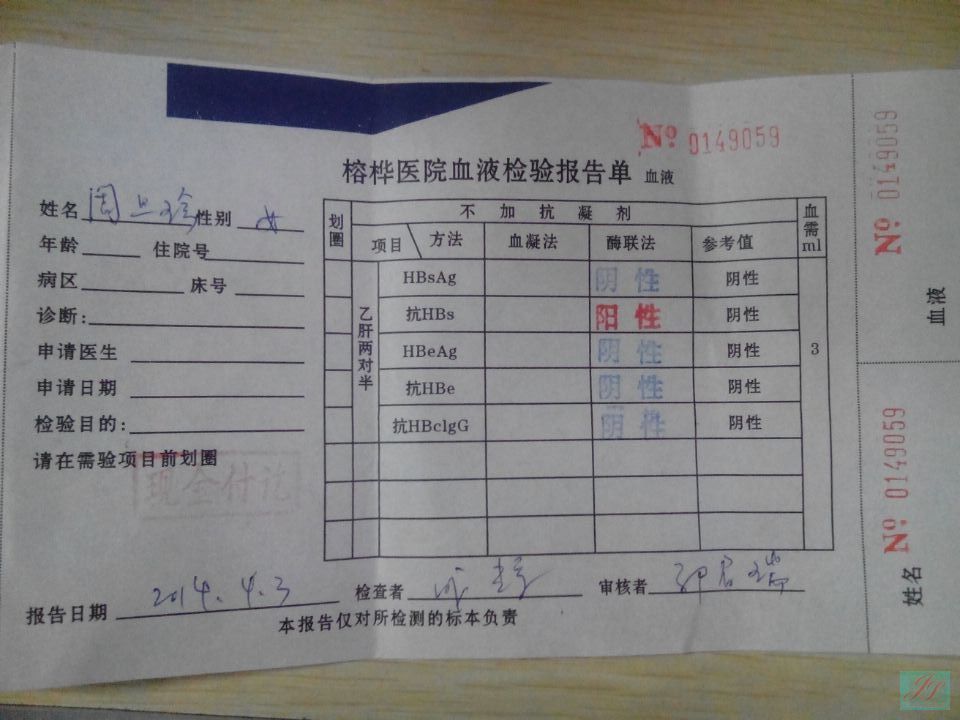 Nº 0149059
榕桦医院血液检验报告单 血液
姓名 性别 女
年龄 住院号
病区 床号
诊断:
申请医生
申请日期
检验目的:
请在需验项目前划圈
现金付讫
划圈 不加抗凝剂 血需ml
项目 方法 血凝法 酶联法 参考值
乙肝两对半
HBsAg 阴性 阴性
抗HBs 阳性 阴性
HBeAg 阴性 阴性
抗HBe 阴性 阴性
抗HBclgG 阴性 阴性
3
报告日期 2014.4.3 检查者 审核者
本报告仅对所检测的标本负责
Nº 0149059
血液
Nº 0149059
姓名